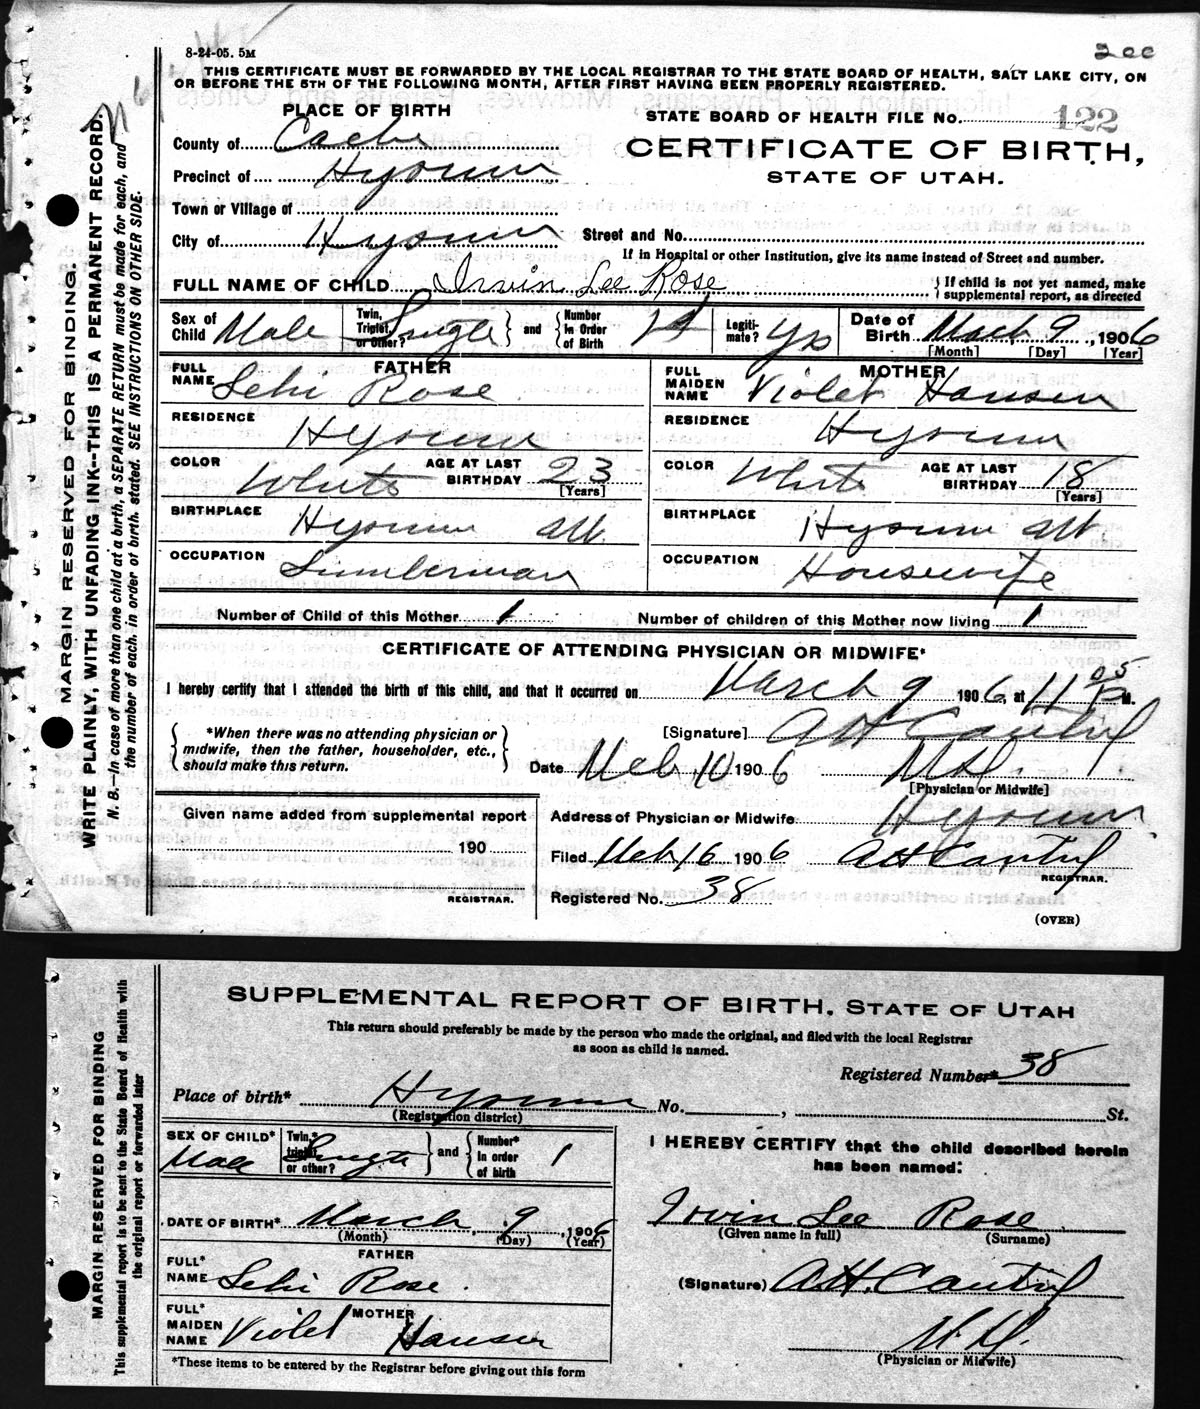 8-24-05. 5M
200
THIS CERTIFICATE MUST BE FORWARDED BY THE LOCAL REGISTRAR TO THE STATE BOARD OF HEALTH, SALT LAKE CITY, ON
OR BEFORE THE 5TH OF THE FOLLOWING MONTH, AFTER FIRST HAVING BEEN PROPERLY REGISTERED.
MARGIN RESERVED FOR BINDING.
WRITE PLAINLY, WITH UNFADING INK--THIS IS A PERMANENT RECORD.
N. B.--In case of more than one child at a birth, a SEPARATE RETURN must be made for each, and
the number of each, in order of birth, stated. SEE INSTRUCTIONS ON OTHER SIDE.
PLACE OF BIRTH
STATE BOARD OF HEALTH FILE No. 122
County of Cache
CERTIFICATE OF BIRTH,
STATE OF UTAH.
Precinct of Hyrum
Town or Village of
City of Hyrum Street and No.
If in Hospital or other Institution, give its name instead of Street and number.
FULL NAME OF CHILD Irvin Lee Rose { If child is not yet named, make
supplemental report, as directed
Sex of Child Male Twin, Triplet, or Other? Single } and { Number In Order of Birth 1st Legiti-mate? Yes Date of Birth March 9, 1906
[Month] [Day] [Year]
FATHER MOTHER
FULL NAME Lehi Rose FULL MAIDEN NAME Violet Hansen
RESIDENCE Hyrum RESIDENCE Hyrum
COLOR White AGE AT LAST BIRTHDAY 23 [Years] COLOR White AGE AT LAST BIRTHDAY 18 [Years]
BIRTHPLACE Hyrum Ut. BIRTHPLACE Hyrum Ut.
OCCUPATION Lumberman OCCUPATION Housewife
Number of Child of this Mother 1 Number of children of this Mother now living 1
CERTIFICATE OF ATTENDING PHYSICIAN OR MIDWIFE*
I hereby certify that I attended the birth of this child, and that it occurred on March 9 1906, at 11 05 P M.
{ *When there was no attending physician or
midwife, then the father, householder, etc.,
should make this return. }
[Signature] A H Cantril
Date Mch 10 1906 M D.
[Physician or Midwife]
Given name added from supplemental report
190
REGISTRAR.
Address of Physician or Midwife Hyrum
Filed Mch 16 1906 A H Cantril
REGISTRAR.
Registered No. 38
(OVER)
MARGIN RESERVED FOR BINDING
This supplemental report is to be sent to the State Board of Health with
the original report or forwarded later
SUPPLEMENTAL REPORT OF BIRTH, STATE OF UTAH
This return should preferably be made by the person who made the original, and filed with the local Registrar
as soon as child is named.
Registered Number* 38
Place of birth* Hyrum No. , St.
(Registration district)
SEX OF CHILD* Male Twin,* triplet, or other? Single } and { Number* in order of birth 1
DATE OF BIRTH* March 9, 1906
(Month) (Day) (Year)
FATHER
FULL* NAME Lehi Rose.
MOTHER
FULL* MAIDEN NAME Violet Hansen
*These items to be entered by the Registrar before giving out this form
I HEREBY CERTIFY that the child described herein
has been named:
Irvin Lee Rose
(Given name in full) (Surname)
(Signature) A.H. Cantril
M.D.
(Physician or Midwife)